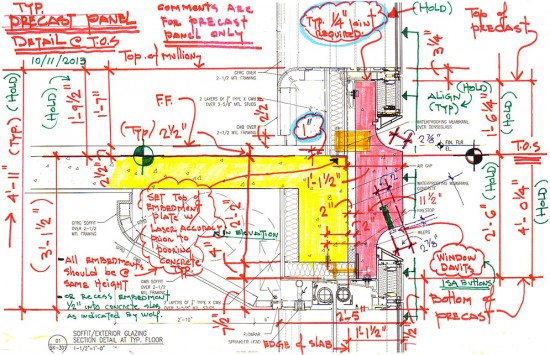 TYP.
PRECAST PANEL
DETAIL @ T.O.S
10/11/2013
COMMENTS ARE
FOR PRECAST
PANEL ONLY
Top of Mullion
Typ. 1/4" joint
REQUIRED
(HOLD)
3/4"
Top of
precast
(HOLD)
1'-9 1/2"
1'-7"
F.F.
GFRC OVER
2-1/2 MTL FRAMING
2 LAYERS OF
GWB OVER
2-1/2 MTL FRAMING
1"
2 1/2"
ALIGN
(TYP)
(HOLD)
1'-6 1/4"
(HOLD)
WATERPROOFING MEMBRANE
OVER DENSGLASS
2 7/8"
FIN. FLR
T.O.S
(TYP)
2 1/2"
4'-11" (TYP) (HOLD)
(3'-1 1/2")
2 1/2"
1'-1 1/2"
AIR GAP
WATERPROOFING MEMBRANE
CONCRETE
11 1/2"
FIRESTOP
WEEPS
2 7/8"
2'-6"
(HOLD)
4'-0 1/4"
(HOLD)
SET TOP of
EMBEDMENT
PLATE W/
LASER ACCURACY
PRIOR TO
POURING
CONCRETE
TYP.
2'-2"
IN ELEVATION
GFRC SOFFIT
OVER 2-1/2
MTL FRAMING
• ALL EMBEDMENTS
should be @
same Height
• OR RECESS EMBEDMENT
INTO CONCRETE SLAB
AS INDICATED BY WOLF.
GWB SOFFIT
OVER 2-1/2
MTL FRAMING
WINDOW
DAVITS
ISA BUTTONS
Bottom of
precast
2'-5"
1'-1 1/2"
EDGE of SLAB
01
SK-30
SOFFIT/EXTERIOR GLAZING
SECTION DETAIL AT TYP. FLOOR
1-1/2"=1'-0"